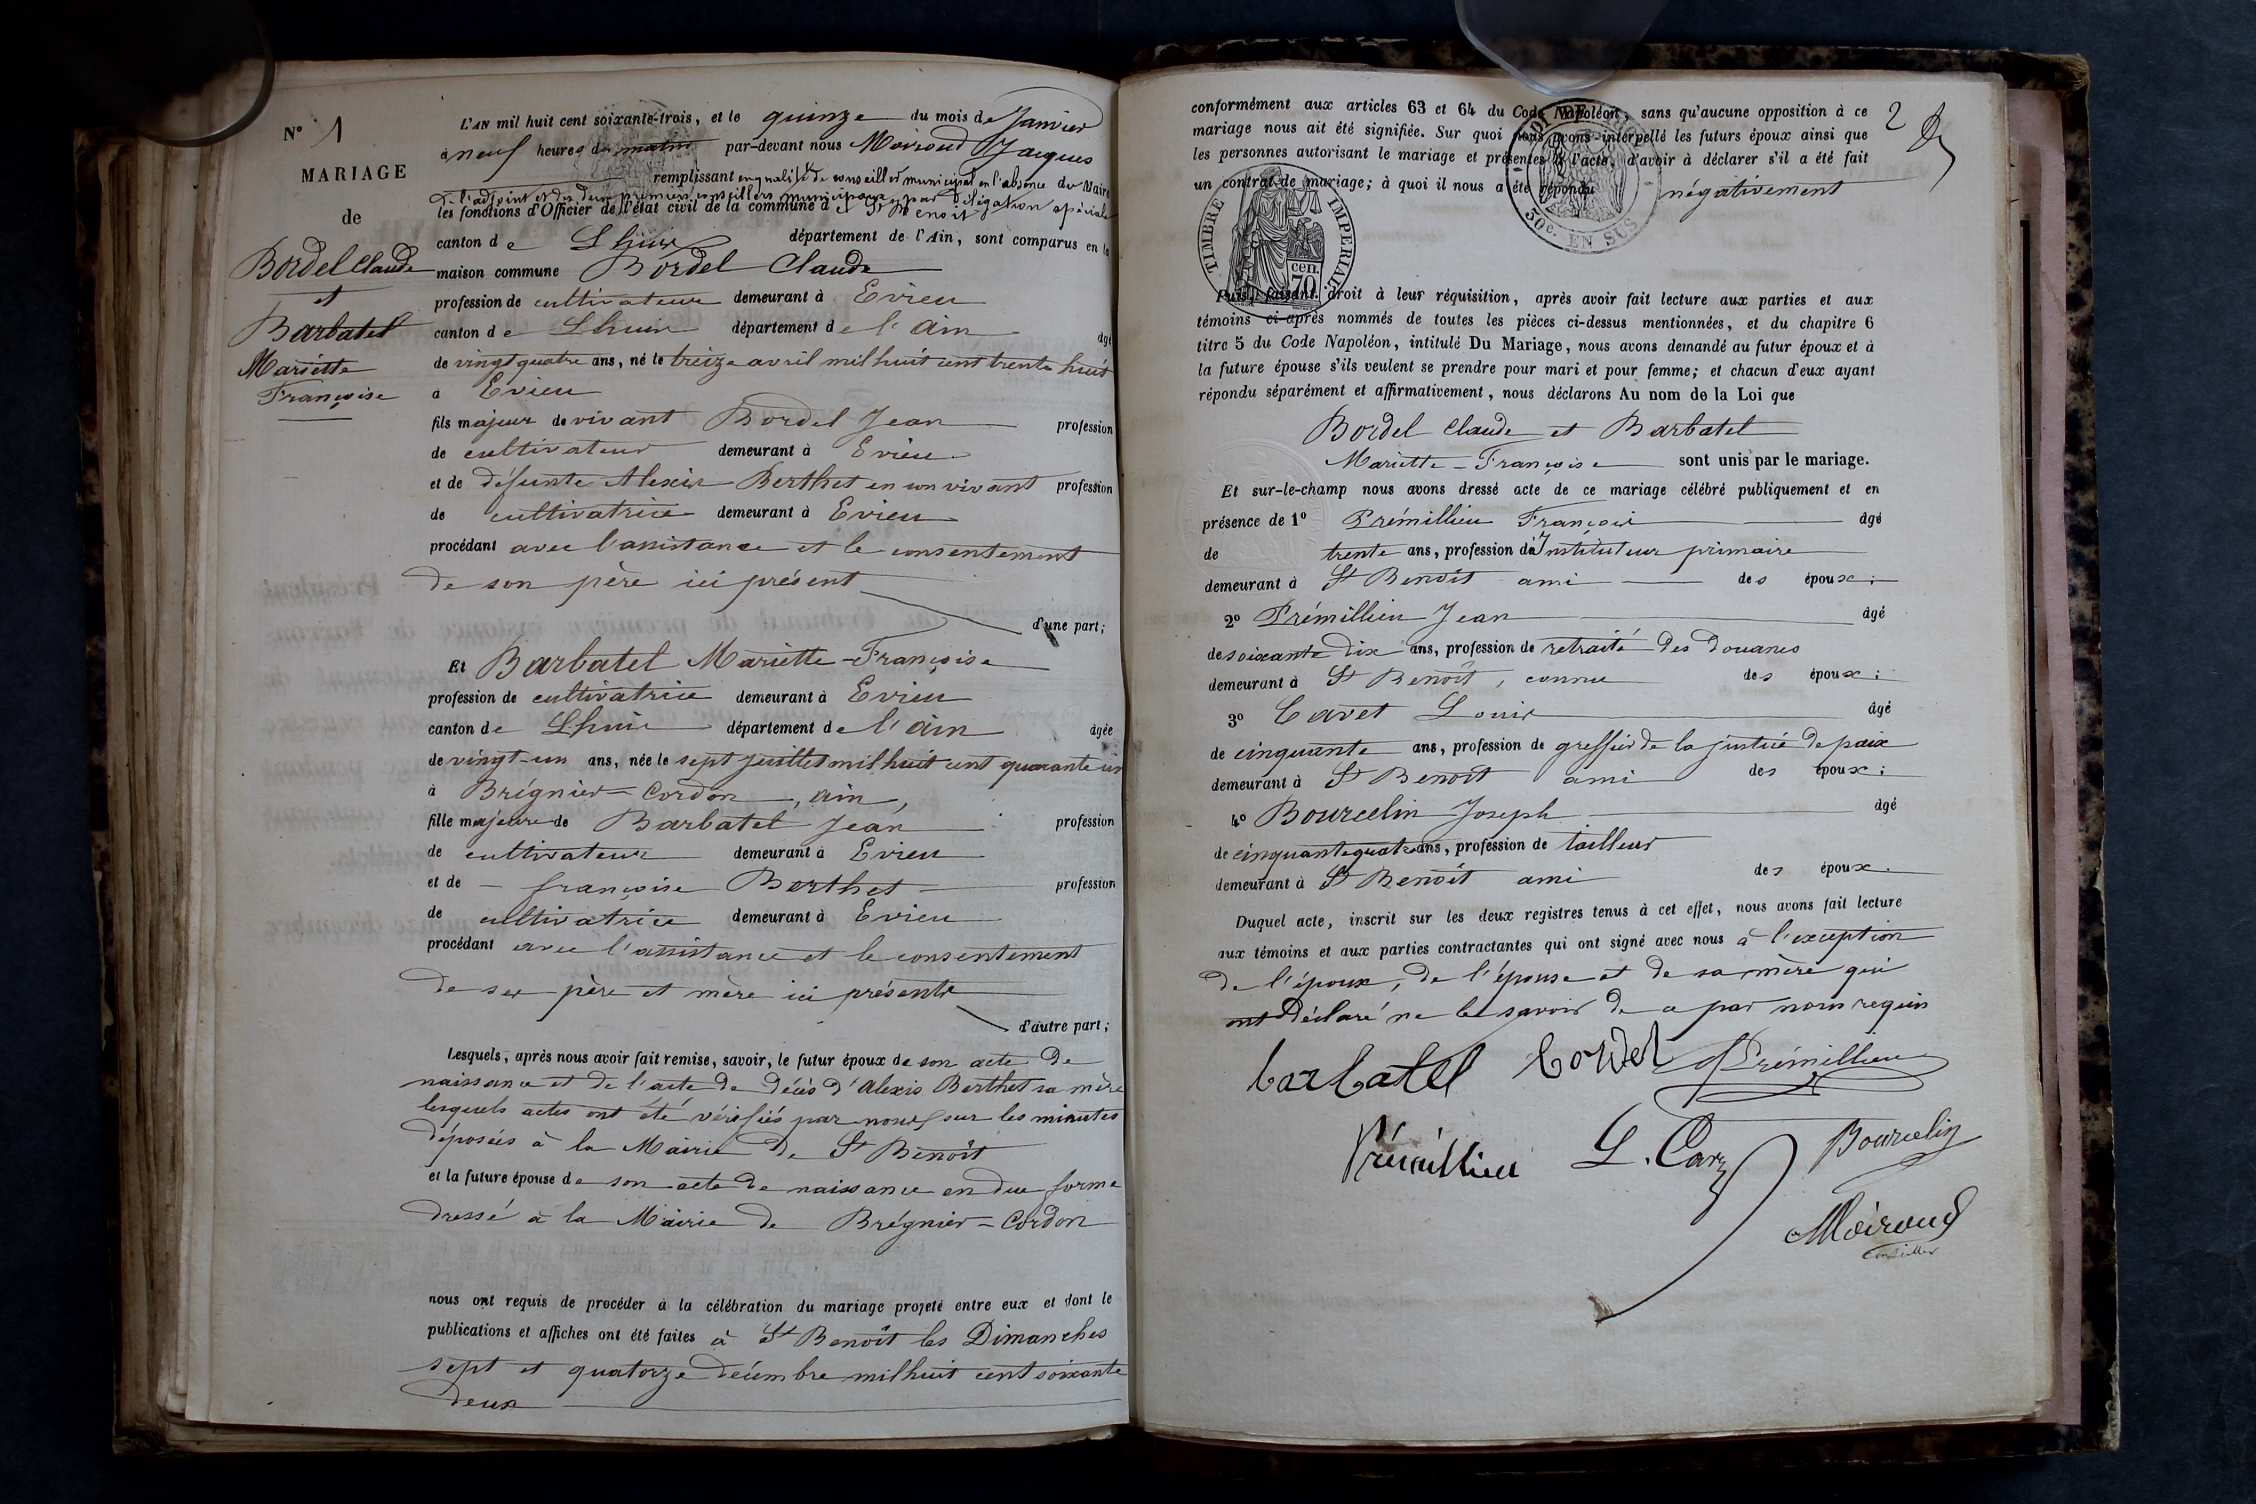 N° 1
MARIAGE
de
Bordel Claude
et
Barbatel
Mariette
Françoise
L'AN mil huit cent soixante-trois, et le quinze du mois de Janvier
à neuf heures du matin par-devant nous Moiroud Jacques
remplissant en qualité de conseiller municipal en l'absence du Maire
de l'adjoint et des deux premiers conseillers municipaux, par délégation spéciale
les fonctions d'Officier de l'état civil de la commune de St Benoit
canton de Lhuis département de l'Ain, sont comparus en la
maison commune Bordel Claude
profession de cultivateur demeurant à Evieu
canton de Lhuis département de l'Ain âgé
de vingt quatre ans, né le treize avril mil huit cent trente huit
à Evieu
fils majeur de vivant Bordel Jean profession
de cultivateur demeurant à Evieu
et de défunte Alexis Berthet en son vivant profession
de cultivatrice demeurant à Evieu
procédant avec l'assistance et le consentement
de son père ici présent
d'une part;
Et Barbatel Mariette-Françoise
profession de cultivatrice demeurant à Evieu
canton de Lhuis département de l'Ain âgée
de vingt-un ans, née le sept juillet mil huit cent quarante un
à Brégnier-Cordon, ain,
fille majeure de Barbatel Jean profession
de cultivateur demeurant à Evieu
et de - françoise Berthet - profession
de cultivatrice demeurant à Evieu
procédant avec l'assistance et le consentement
de ses père et mère ici présents
d'autre part;
Lesquels, après nous avoir fait remise, savoir, le futur époux de son acte de
naissance et de l'acte de décès d'Alexis Berthet sa mère
lesquels actes ont été vérifiés par nous sur les minutes
déposées à la Mairie de St Benoît
et la future épouse de son acte de naissance en due forme
dressé à la Mairie de Brégnier-Cordon
nous ont requis de procéder à la célébration du mariage projeté entre eux et dont le
publications et affiches ont été faites à St Benoît les Dimanches
sept et quatorze décembre mil huit cent soixante
deux
2
conformément aux articles 63 et 64 du Code Napoléon, sans qu'aucune opposition à ce
mariage nous ait été signifiée. Sur quoi nous avons interpellé les futurs époux ainsi que
les personnes autorisant le mariage et présentes à l'acte, d'avoir à déclarer s'il a été fait
un contrat de mariage; à quoi il nous a été répondu négativement
50c. EN SUS
TIMBRE IMPERIAL
cen. 70
Puis, faisant droit à leur réquisition, après avoir fait lecture aux parties et aux
témoins ci-après nommés de toutes les pièces ci-dessus mentionnées, et du chapitre 6
titre 5 du Code Napoléon, intitulé Du Mariage, nous avons demandé au futur époux et à
la future épouse s'ils veulent se prendre pour mari et pour femme; et chacun d'eux ayant
répondu séparément et affirmativement, nous déclarons Au nom de la Loi que
Bordel Claude et Barbatel
Mariette-Françoise sont unis par le mariage.
Et sur-le-champ nous avons dressé acte de ce mariage célébré publiquement et en
présence de 1° Prémillieu François âgé
de trente ans, profession d'Instituteur primaire
demeurant à St Benoît ami des époux;
2° Prémillieu Jean âgé
de soixante dix ans, profession de retraité des douanes
demeurant à St Benoît, connu des époux;
3° Cavet Louis âgé
de cinquante ans, profession de greffier de la justice de paix
demeurant à St Benoît ami des époux;
4° Bourcelin Joseph âgé
de cinquante quatre ans, profession de tailleur
demeurant à St Benoît ami des époux.
Duquel acte, inscrit sur les deux registres tenus à cet effet, nous avons fait lecture
aux témoins et aux parties contractantes qui ont signé avec nous à l'exception
de l'époux, de l'épouse et de sa mère qui
ont déclaré ne le savoir de ce par nous requis
barbatel bordel Prémillieu
Prémillieu L. Cavet Bourcelin
Moiroud
Conseiller